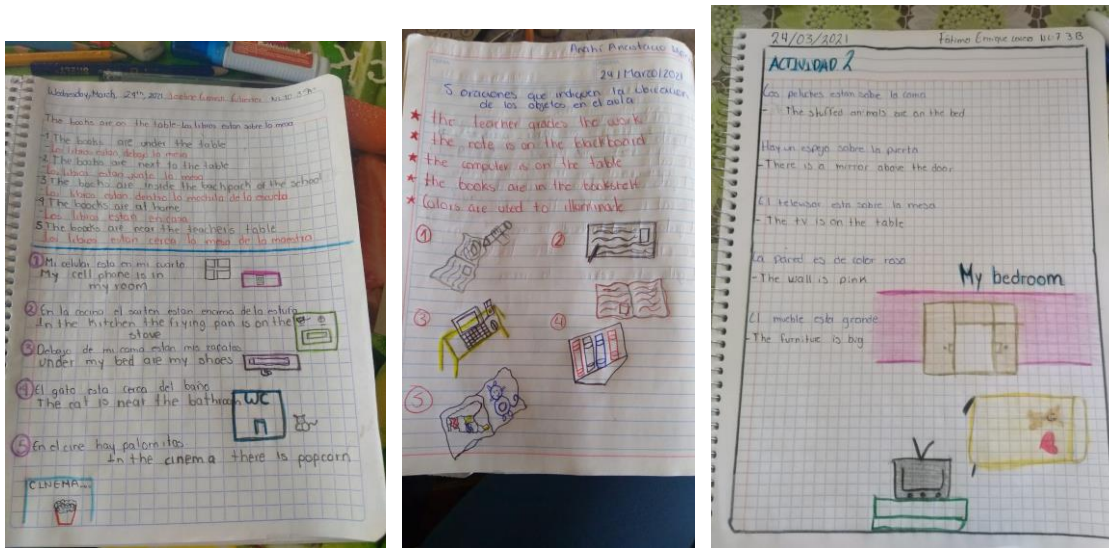 Wednesday, March 24th, 2021
The books are on the table-los libros estan sobre la mesa
1. The books are under the table
-Los libros estan debajo la mesa
2. The books are next to the table
-Los libros estan junto la mesa
3. The books are inside the bachpach of the school
Los libros estan dentro la mochila de la escuela
4. The boocks are at home
-Los libros estan en casa
5. The boocks are near the teacher's table
Los libros estan cerca la mesa de la maestra
1 Mi celular esta en mi cuarto
My cell phone is in
my room
2 En la cocina el sarten estan encima de la estufa
In the kitchen the frying pan is on the
stove
3 Debajo de mi cama estan mis zapatos
under my bed are my shoes
4 El gato esta cerca del baño
The cat is neat the bathroom
WC
5 En el cine hay palomitas
In the cinema there is popcorn
CINEMA...
24/Marzo/2021
5 oraciones que indiquen la ubicación
de los objetos en el aula
★ the teacher grades the work
★ the note is on the blackboard
★ the computer is on the table
★ the books are in the bookshelf
★ Colors are used to illuminate
1
2
3
4
5
24/03/2021
Fátima Enrique N.L:7 3B
ACTIVIDAD 2
Los peluches estan sobre la cama
- The stuffed animals are on the bed
Hay un espejo sobre la puerta
- There is a mirror above the door
El televisor esta sobre la mesa
- The tv is on the table
La pared es de color rosa
- The wall is pink
My bedroom
El mueble esta grande
- The furnitue is big